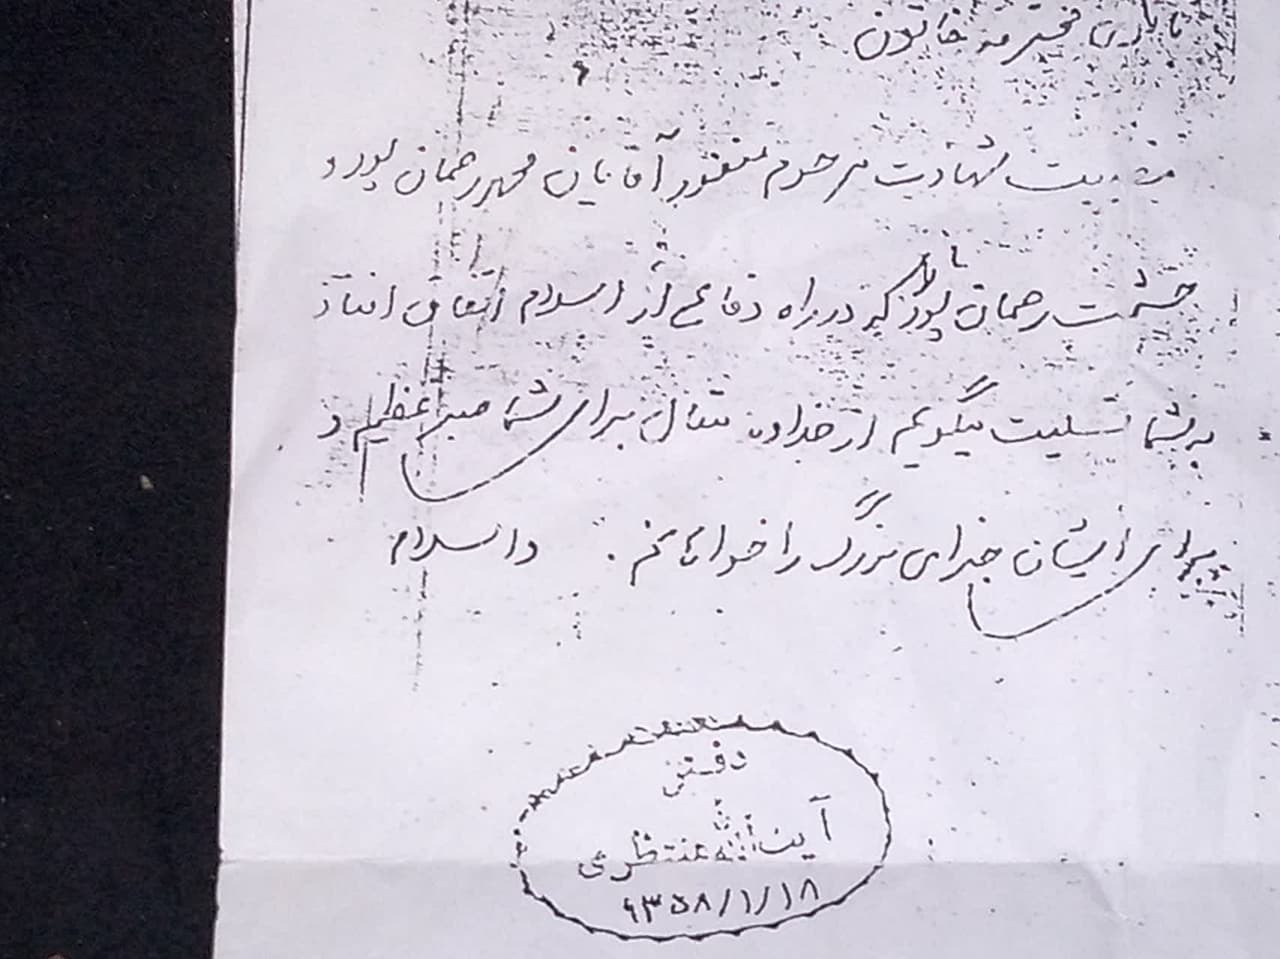 محترمه خاتون
شهادت مرحوم مغفور آقایان محمد رحمان پور و
حشمت رحمان پور که در راه دفاع از اسلام اتفاق افتاد
به شما تسلیت میگویم از خداوند متعال برای شما صبر عظیم و
برای ایشان جزای بزرگ را خواهانم . والسلام
دفتر
آیت الله منتظری
۱۳۵۸/۱/۱۸